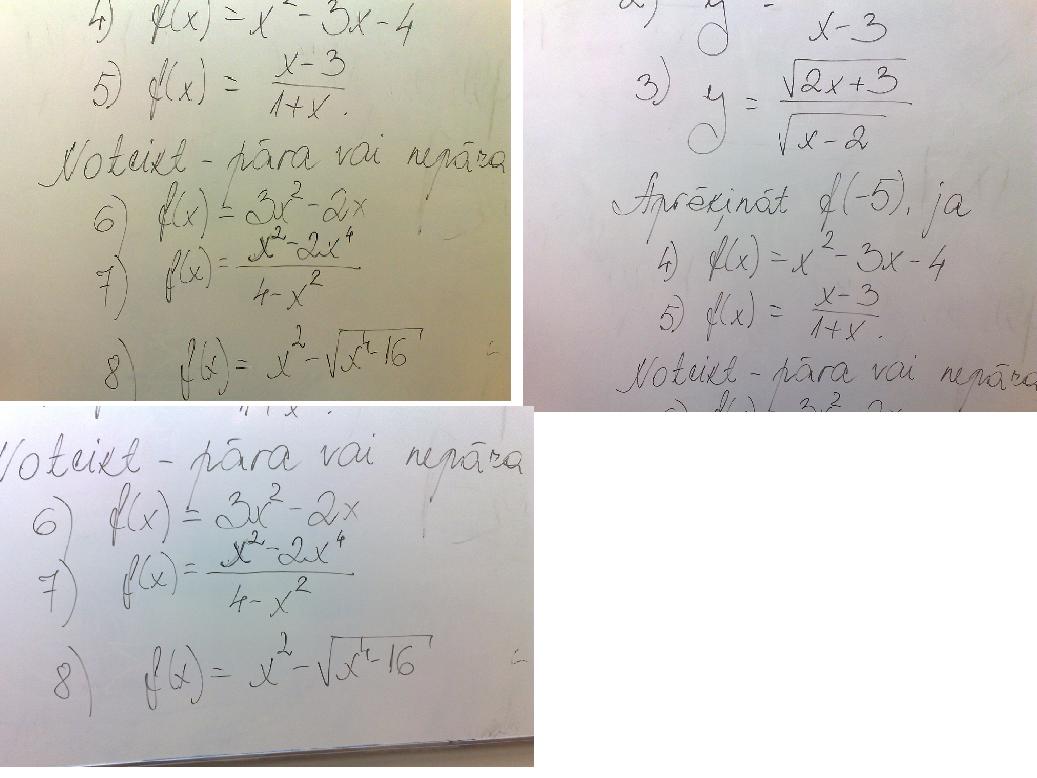 4) f(x) = x² - 3x - 4
5) f(x) = (x-3)/(1+x).
Noteikt - pāra vai nepāra
6) f(x) = 3x² - 2x
7) f(x) = (x² - 2x⁴)/(4 - x²)
8) f(x) = x² - √(x⁴-16)
2) y =
x-3
3) y = √(2x+3)/√(x-2)
Aprēķināt f(-5), ja
4) f(x) = x² - 3x - 4
5) f(x) = (x-3)/(1+x).
Noteikt - pāra vai nepāra
3x² 2x
1+x.
Noteikt - pāra vai nepāra
6) f(x) = 3x² - 2x
7) f(x) = (x² - 2x⁴)/(4 - x²)
8) f(x) = x² - √(x⁴-16)